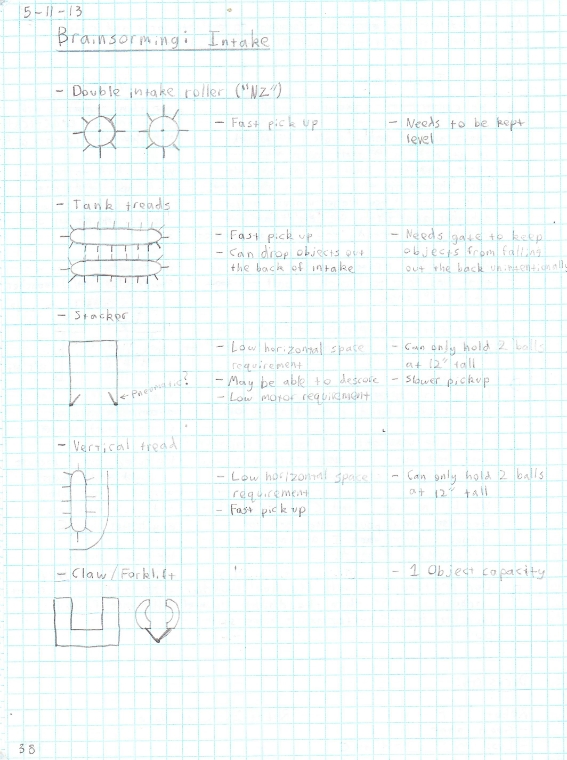 5-11-13
Brainsorming: Intake
- Double intake roller ("NZ")
- Fast pick up
- Needs to be kept
level
- Tank treads
- Fast pick up
- Can drop objects out
the back of intake
- Needs gate to keep
objects from falling
out the back unintentionally
- Stacker
← Pneumatic?
- Low horizontal space
requirement
- May be able to descore
- Low motor requirement
- Can only hold 2 balls
at 12" tall
- Slower pickup
- Vertical tread
- Low horizontal space
requirement
- Fast pick up
- Can only hold 2 balls
at 12" tall
- Claw/Forklift
- 1 Object capacity
38